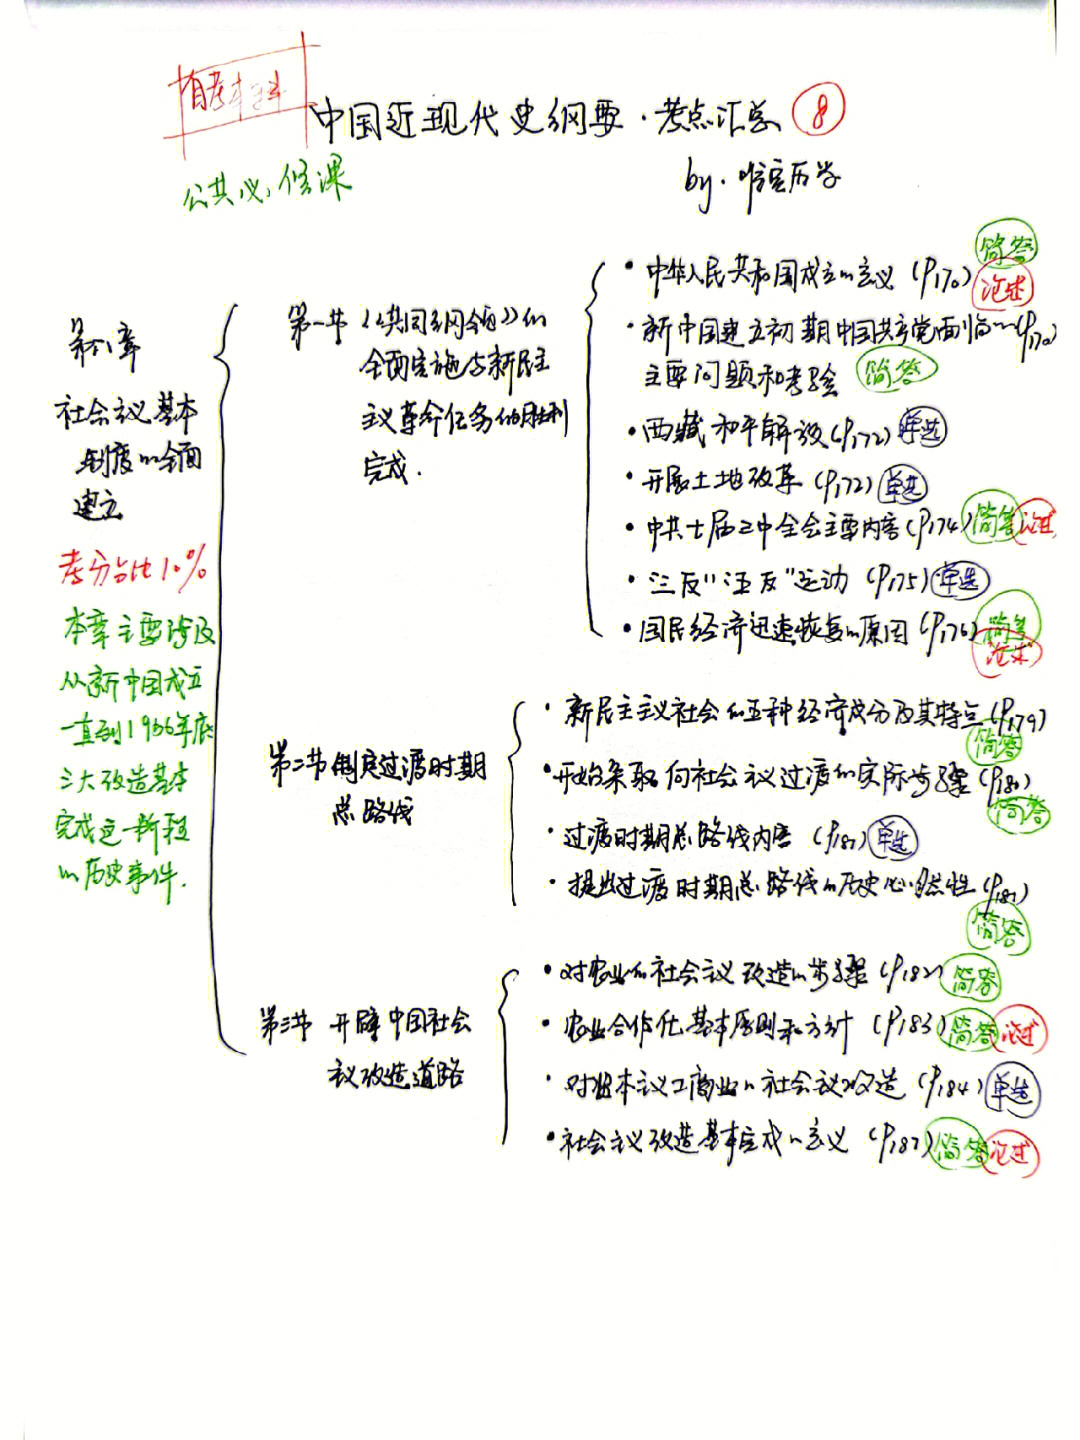 自考本科
中国近现代史纲要·考点汇总 8
公共必修课
by·唯宝历学
第八章
社会主义基本
制度的全面
建立
考分占比10%
本章主要涉及
从新中国成立
一直到1956年底
三大改造基本
完成这一阶段
的历史事件.
第一节《共同纲领》的
全面实施与新民主
主义革命任务的胜利
完成.
·中华人民共和国成立的意义(P170) 简答 论述
·新中国建立初期中国共产党面临的(P170)
主要问题和考验 简答
·西藏和平解放(P172) 单选
·开展土地改革(P172) 单选
·中共七届三中全会主要内容(P174) 简答 论述
·"三反""五反"运动(P175) 单选
·国民经济迅速恢复的原因(P176) 简答 论述
第二节 制定过渡时期
总路线
·新民主主义社会的五种经济成分及其特点(P179)
简答
·开始采取向社会主义过渡的实际步骤(P180)
简答
·过渡时期总路线内容(P181) 单选
·提出过渡时期总路线的历史必然性(P181)
简答
第三节 开辟中国社会
主义改造道路
·对农业的社会主义改造的步骤(P182) 简答
·农业合作化基本原则和方针(P183) 简答 论述
·对资本主义工商业的社会主义改造(P184) 单选
·社会主义改造基本完成的意义(P187) 简答 论述